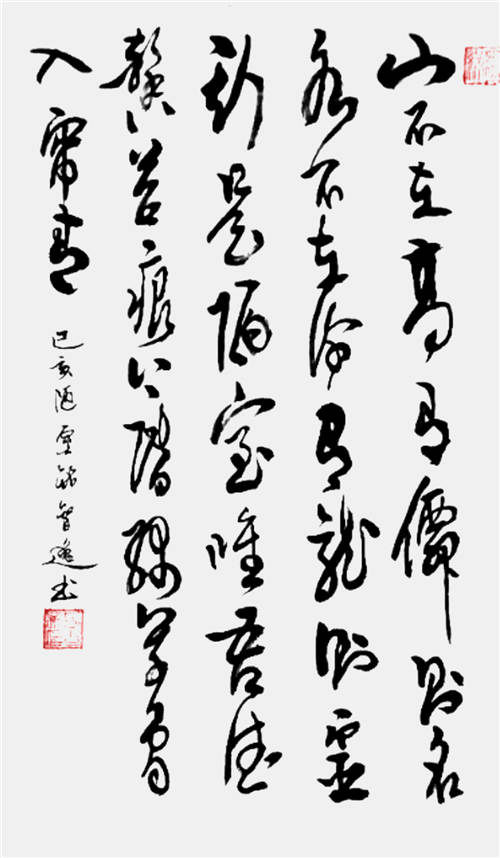 山不在高有僊則名
水不在深有龍則靈
斯是陋室唯吾德
馨苔痕上階綠草色
入帘青
己亥陋室銘智书